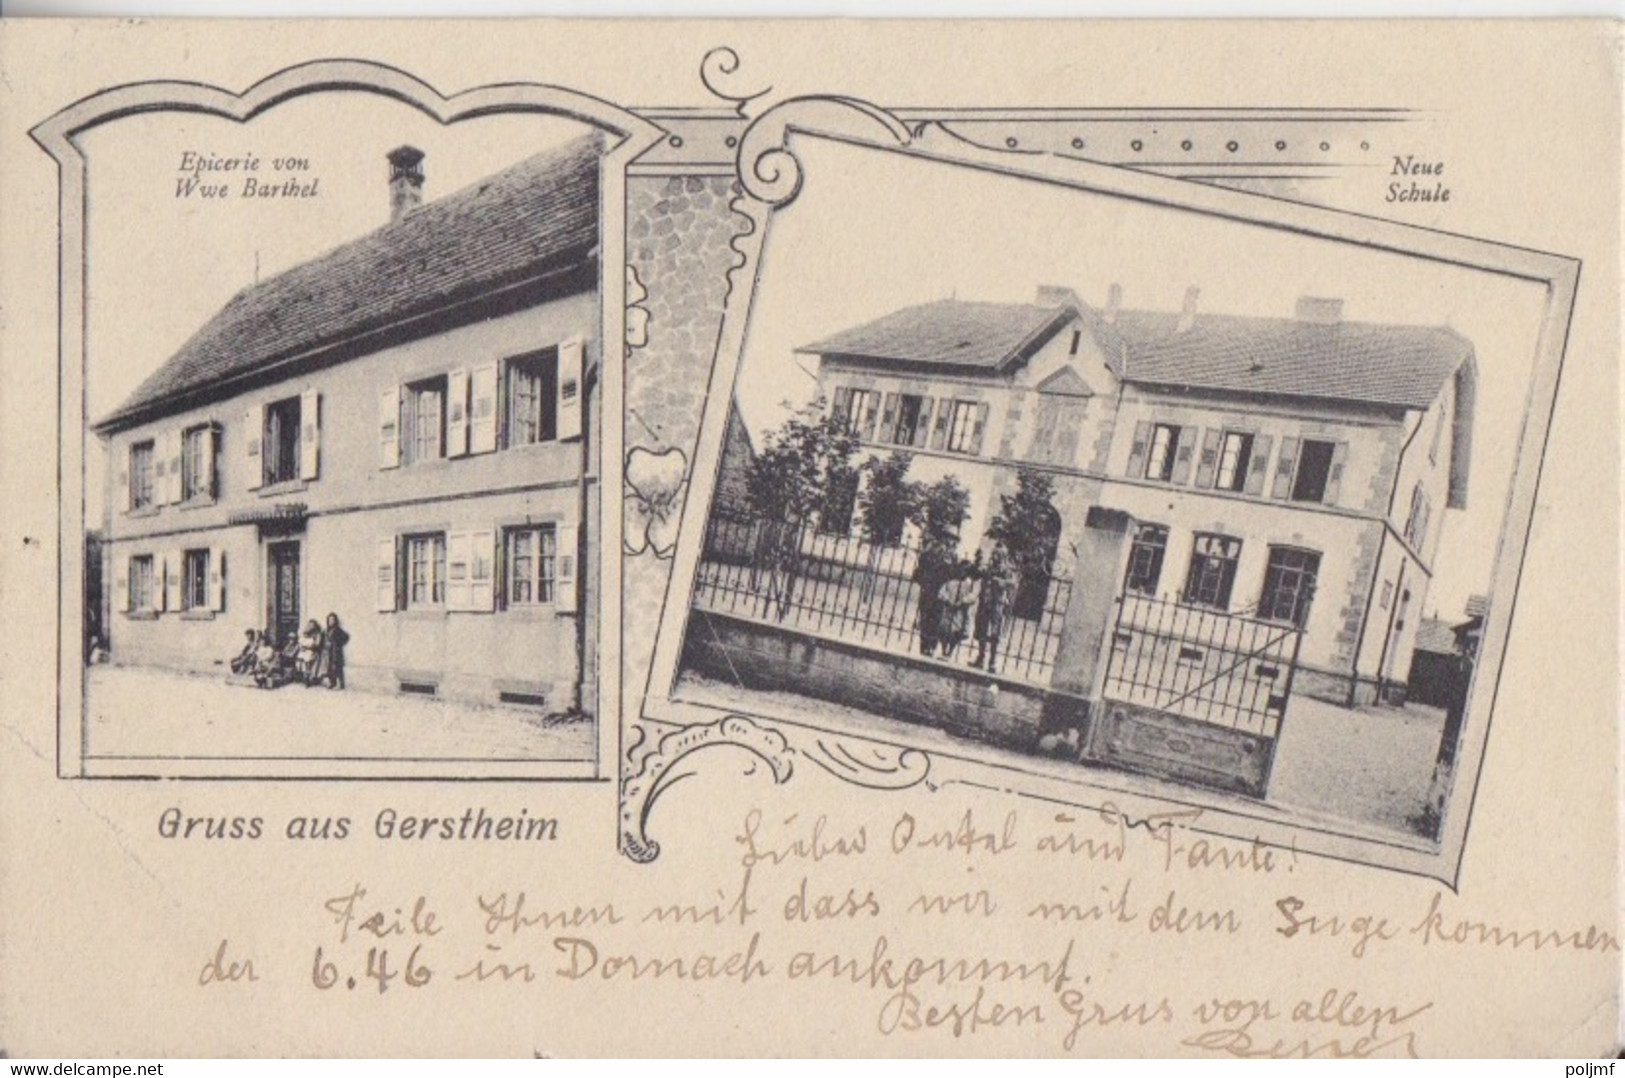 Epicerie von
Wwe Barthel
Neue
Schule
Gruss aus Gerstheim
Lieber Onkel und Tante!
Teile Ihnen mit dass wir mit dem Zuge kommen
der 6.46 in Dornach ankommt.
Besten Grus von allen
www.delcampe.net
poljmf